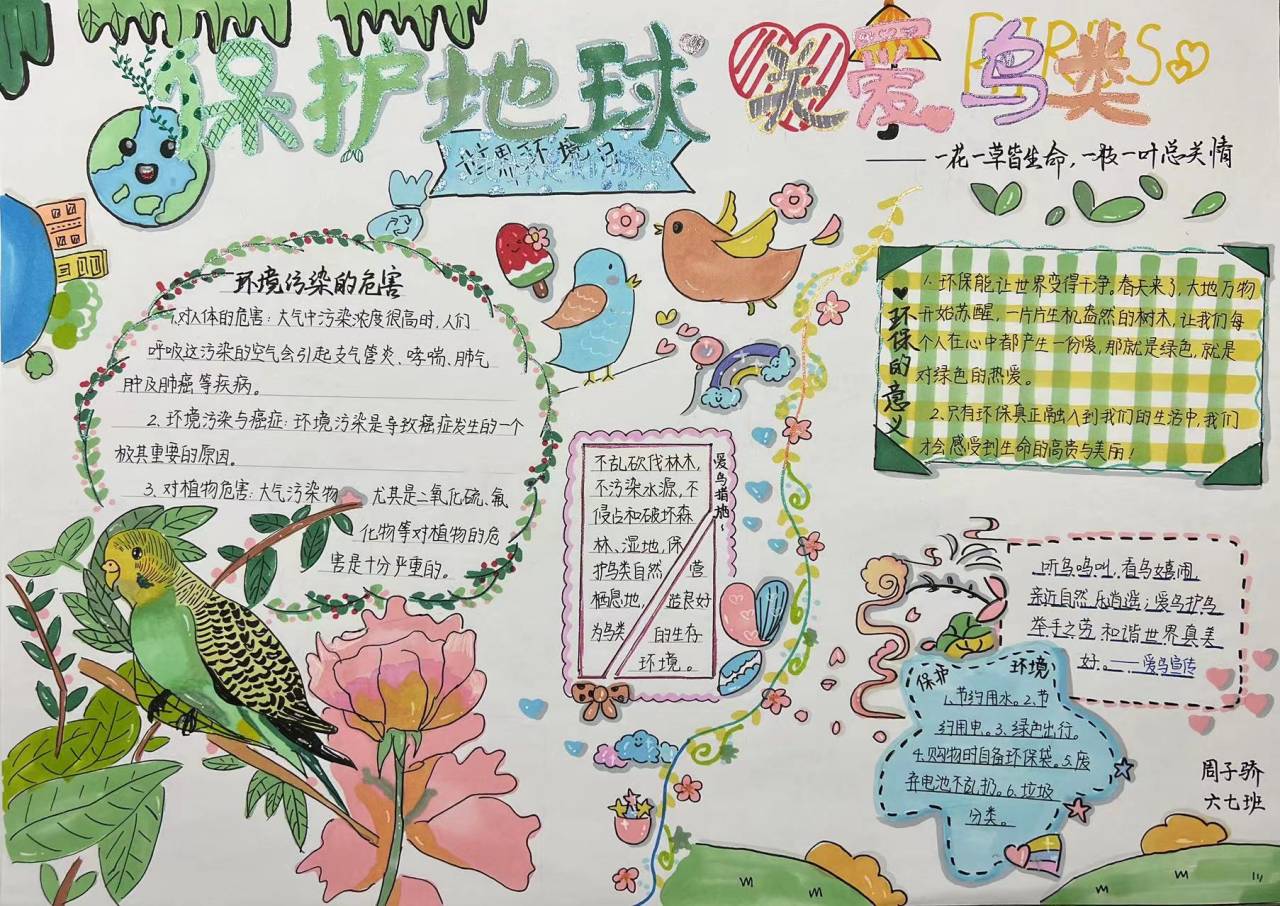 保护地球 关爱鸟类
BIRDS
世界环境日
——一花一草皆生命，一枝一叶总关情
环境污染的危害
1.对人体的危害：大气中污染浓度很高时，人们
呼吸这污染的空气会引起支气管炎、哮喘、肺气
肿及肺癌等疾病。
2.环境污染与癌症：环境污染是导致癌症发生的一个
极其重要的原因。
3.对植物危害：大气污染物 尤其是二氧化硫、氟
化物等对植物的危
害是十分严重的。
爱鸟措施：
不乱砍伐林木，
不污染水源，不
侵占和破坏森
林、湿地，保
护鸟类自然 营
栖息地， 造良好
为鸟类 的生存
环境。
环保的意义
1.环保能让世界变得干净。春天来了，大地万物
开始苏醒，一片片生机盎然的树木，让我们每
个人在心中都产生一份爱，那就是绿色，就是
对绿色的热爱。
2.只有环保真正融入到我们的生活中，我们
才会感受到生命的高贵与美丽！
听鸟鸣叫，看鸟嬉闹，
亲近自然乐逍遥；爱鸟护鸟
举手之劳和谐世界真美
好。——爱鸟宣传
保护 环境
1.节约用水。2.节
约用电。3.绿色出行。
4.购物时自备环保袋。5.废
弃电池不乱扔。6.垃圾
分类。
周子骄
六七班